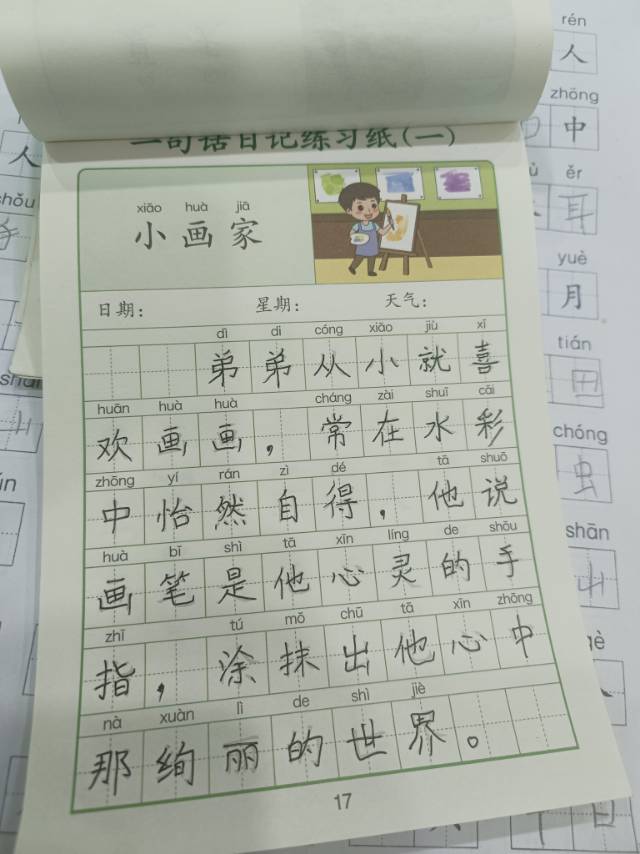 一句话日记练习纸(一)
xiǎo huà jiā
小画家
日期： 星期： 天气：
dì di cóng xiǎo jiù xǐ
弟弟从小就喜
huān huà huà cháng zài shuǐ cǎi
欢画画，常在水彩
zhōng yí rán zì dé tā shuō
中怡然自得，他说
huà bǐ shì tā xīn líng de shǒu
画笔是他心灵的手
zhǐ tú mǒ chū tā xīn zhōng
指，涂抹出他心中
nà xuàn lì de shì jiè
那绚丽的世界。
17
rén
人
zhōng
中
ěr
耳
yuè
月
tián
田
chóng
虫
shān
山
人
手
山